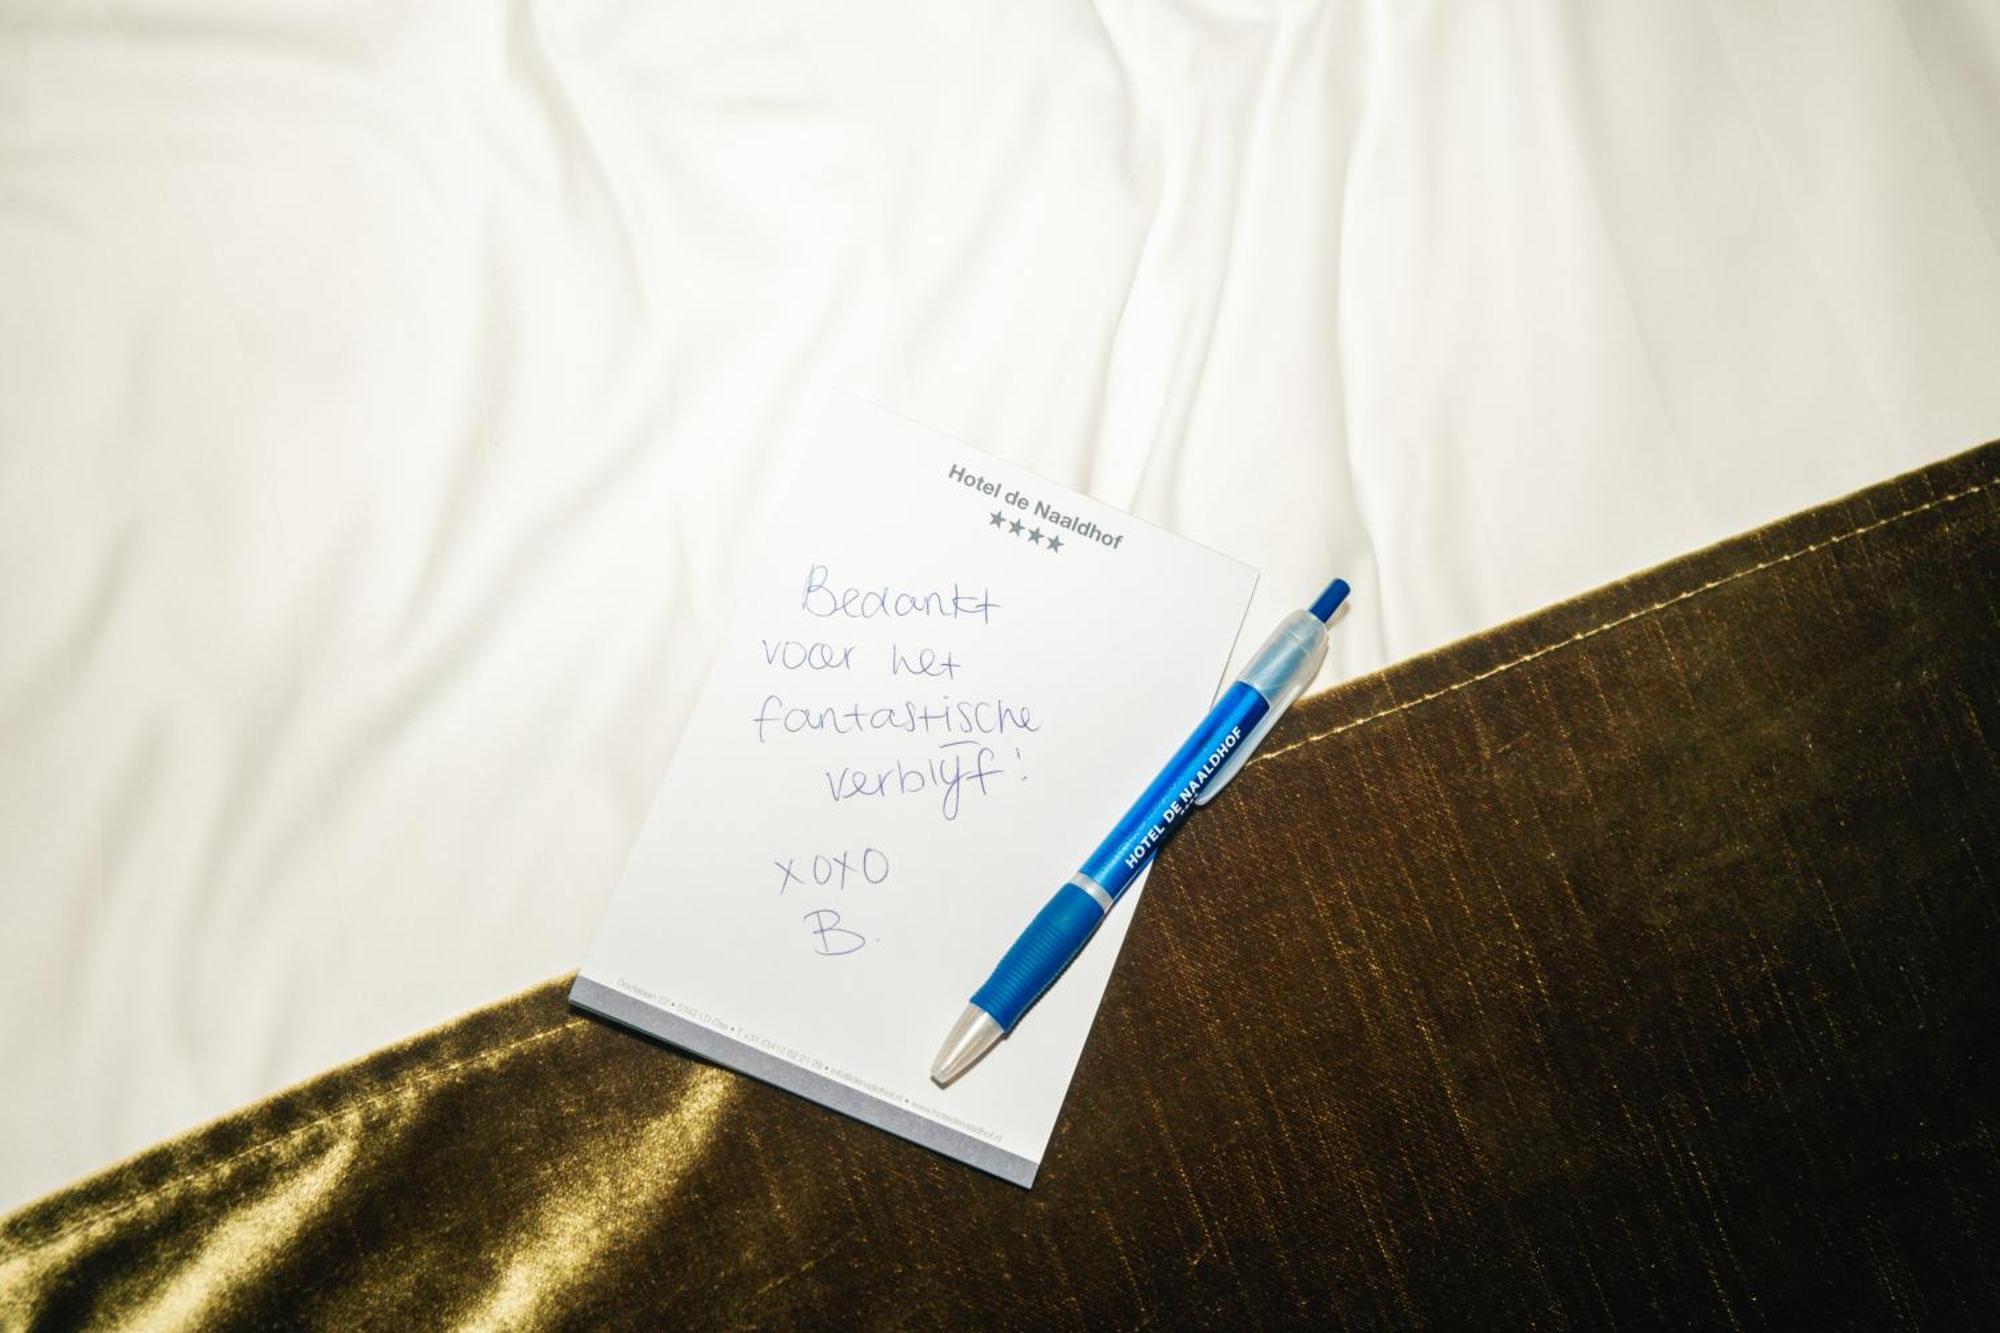 Hotel de Naaldhof
★★★★
Bedankt
voor het
fantastische
verblijf!
xoxo
B.
Docfalaan 22 • 5342 LD Oss • T +31 (0)412 62 21 29 • info@denaaldhof.nl • www.hoteldenaaldhof.nl
HOTEL DE NAALDHOF